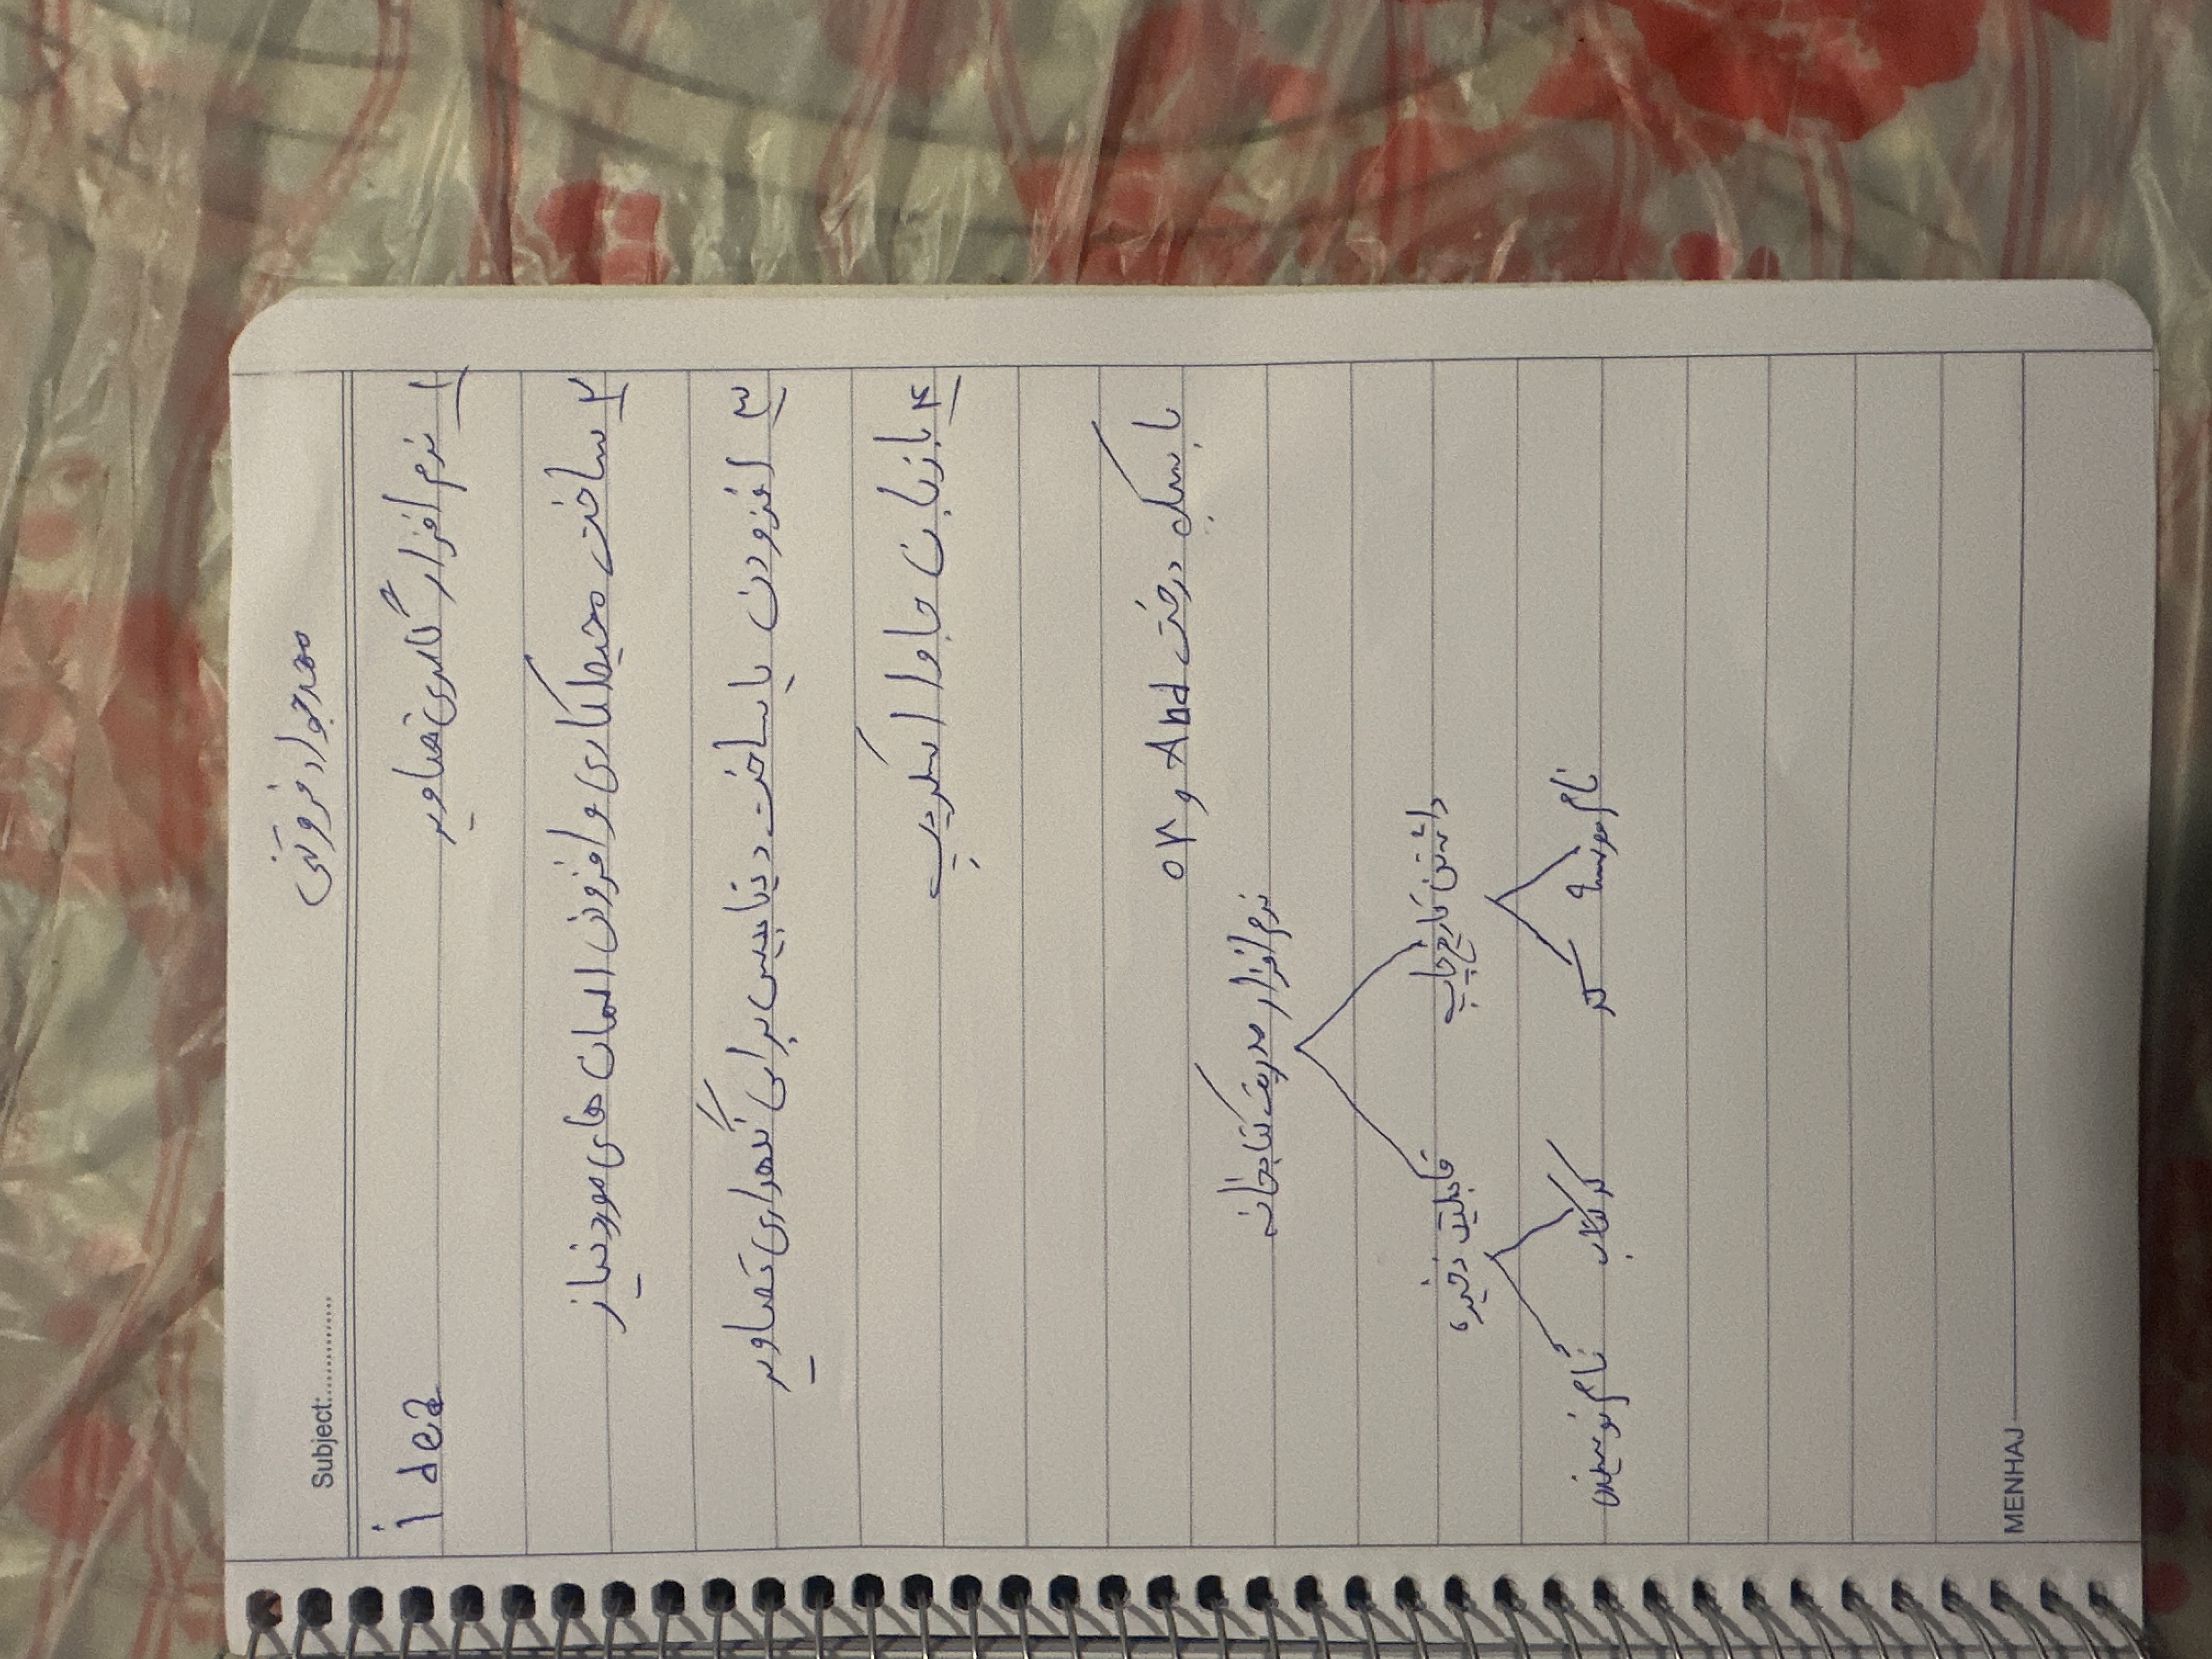 محمدجواد فروتنی
Subject:...............
idea
۱ نرم افزار گالری تصاویر
۲ ساخت محیط کاری و افزودن المان های مورد نیاز
۳ افزودن یا ساخت دیتابیس برای نگهداری تصاویر
۴ با زبان جاوا اسکریپ
با سبک درخت And و or
نرم افزار مدریت کتابخانه
داشتن تاریخ چاپ قابلیت ذخیره
نام موسسه کد کد کتاب نام نویسنده
MENHAJ